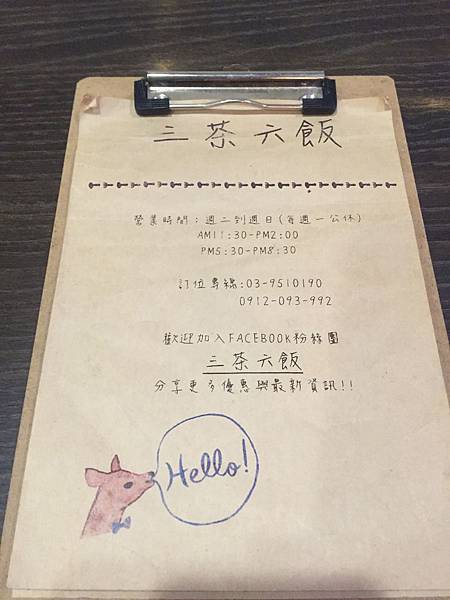 三茶六飯
營業時間：週二到週日(每週一公休)
AM11:30-PM2:00
PM5:30-PM8:30
訂位專線:03-9510190
0912-093-992
歡迎加入FACEBOOK粉絲團
三茶六飯
分享更多優惠與最新資訊!!
Hello!